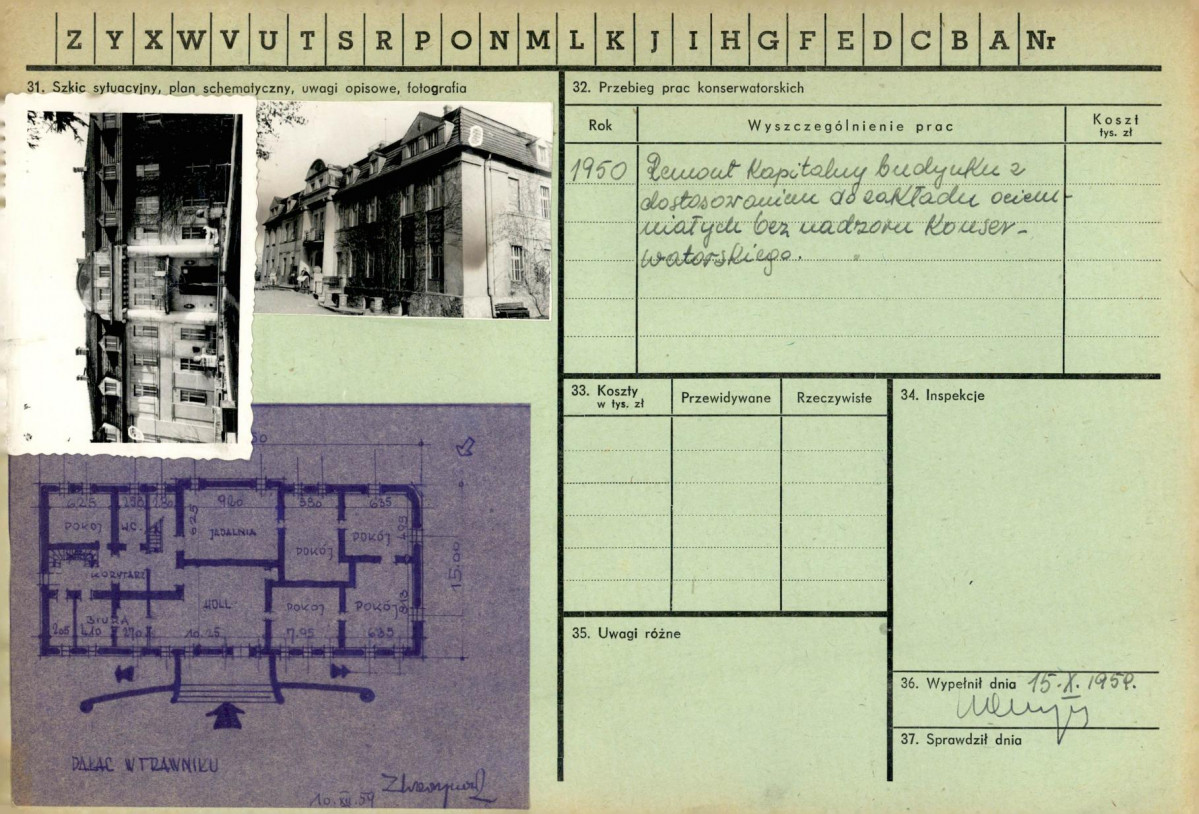 Z Y X W V U T S R P O N M L K J I H G F E D C B A Nr
31. Szkic sytuacyjny, plan schematyczny, uwagi opisowe, fotografia
32. Przebieg prac konserwatorskich
Rok
Wyszczególnienie prac
Koszt
tys. zł
1950 Remont Kapitalny budynku z
dostosowaniem do zakładu ociem-
niałych bez nadzoru Konser-
watorskiego.
33. Koszty
w tys. zł
Przewidywane
Rzeczywiste
34. Inspekcje
35. Uwagi różne
36. Wypełnił dnia 15.X.1959.
37. Sprawdził dnia
625 250 280 920 330 635
POKÓJ W.C. 625 JADALNIA POKÓJ POKÓJ
15.00
KORYTARZ
HOLL POKÓJ POKÓJ
BIURA
205 410 270 10.25 7.95 635
PAŁAC W TRAWNIKU
10.XII.59